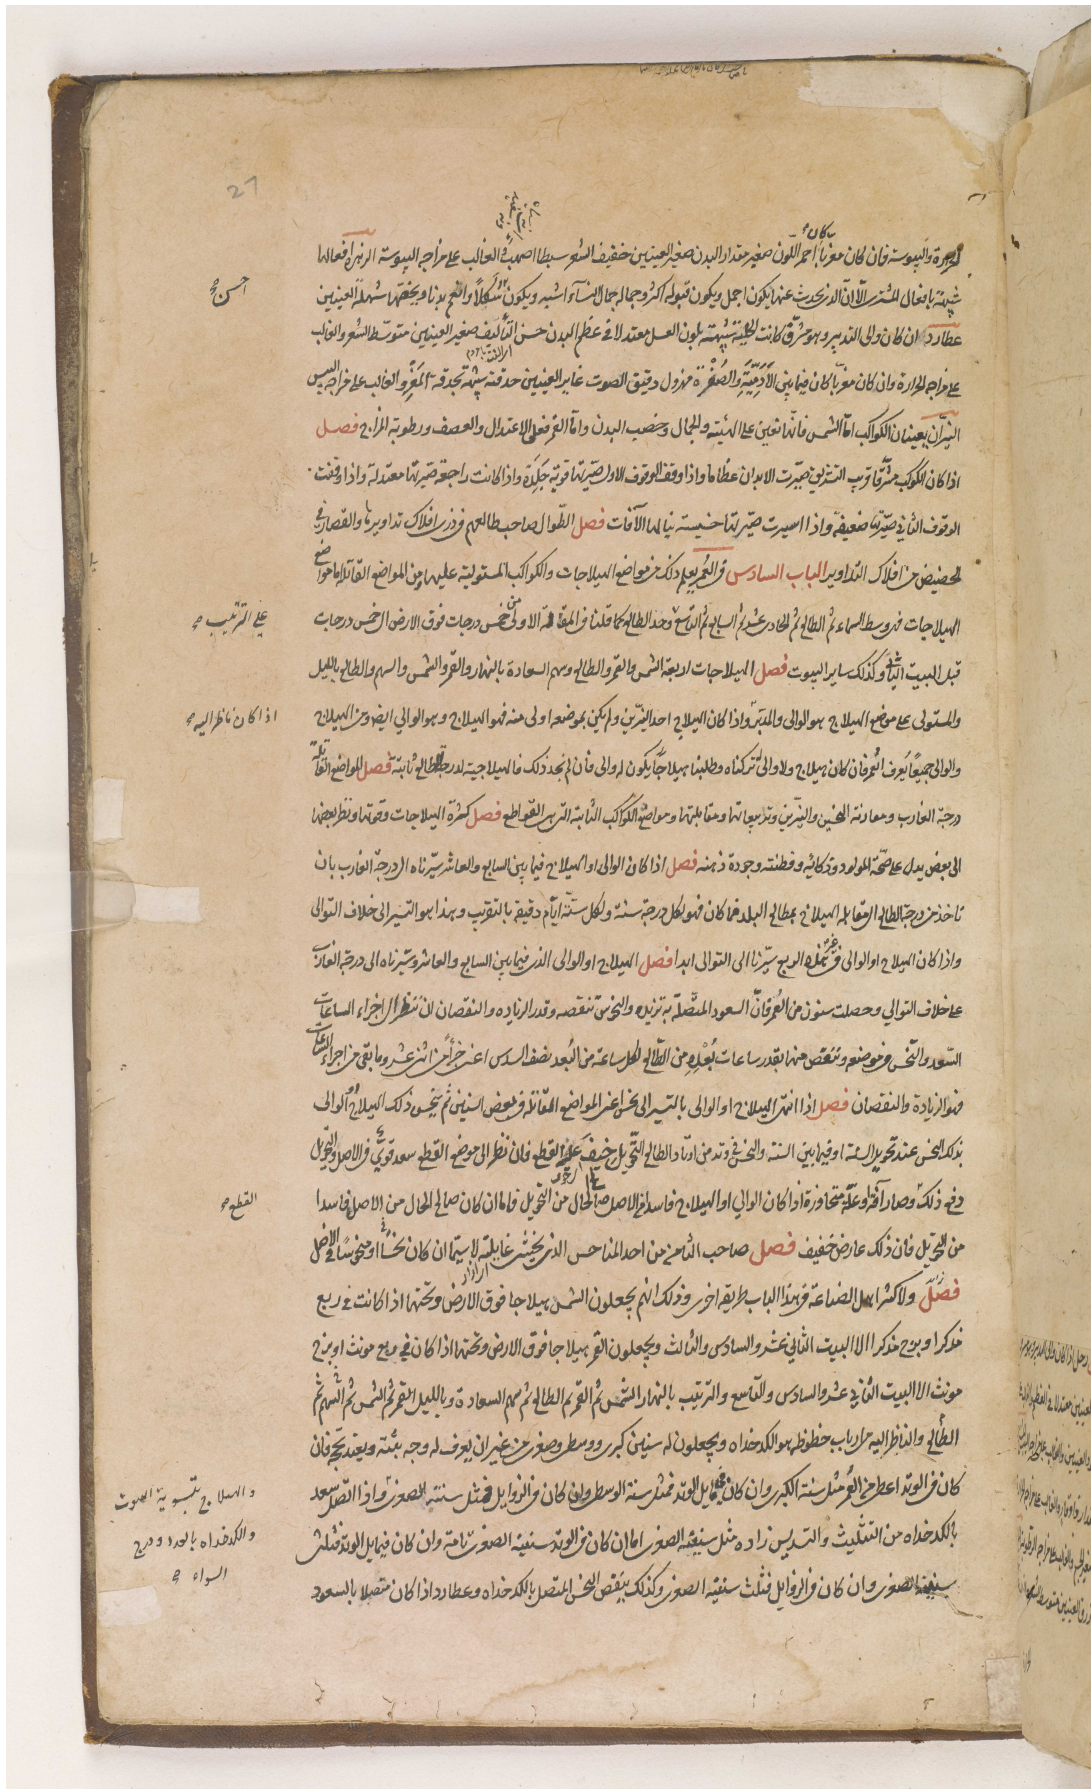 27
واليبوسة فان كان مغربا كان احمر اللون صغير مقدار البدن صغير العينين خفيف الشعر سبطا اصهب في الغالب على مزاجه اليبوسة الزهرة افعالها
شبيهة بافعال المشتري الا ان الذي يحدث عنها يكون اجمل ويكون قبوله اكثر وجماله جمال النساء اشبه ويكون شكلا واضح ويخصها شهلة العينين
احسن صح
عطارد ان كان والى التدبير وهو مشرق كانت الحلية شبيهة بلون العسل معتدلا في عظم البدن حسن التأليف صغير العينين متوسط الشعر والغالب
على مزاجه الحرارة وان كان مغربا كان فيما بين الادمية والصفرة مهزول دقيق الصوت غاير العينين حدقته شبيهة بحدقة المعز والغالب على مزاجه اليبس
النيران يعينان الكواكب اما الشمس فانها تعين على الهيئة والجمال وخصب البدن واما القمر فعلى الاعتدال والعصف ورطوبة المزاج فصل
اذا كان الكوكب مشرقا قريب التشريق صيرت الابدان عظاما واذا وقف الوقوف الاول صيرتها قوية جلدة واذا كانت راجعة صيرتها معتدلة واذا وقفت
الوقوف الثاني صيرتها ضعيفة واذا اسيرت صيرتها خسيسة ينالها الآفات فصل الطوال صاحب طالعهم في ذرى افلاك تداويرها والقصار في
الحضيض من افلاك التداوير الباب السادس في العمر يعلم ذلك من مواضع الهيلاجات والكواكب المستولية عليها ومن المواضع القتالة اما مواضع
الهيلاجات فهي وسط السماء ثم الطالع ثم الحادي عشر ثم السابع ثم التاسع وحد الطالع كما قلنا في المقالة الاولى من خمس درجات فوق الارض الى خمس درجات
على الترتيب صح
قبل البيت الثاني وكذلك ساير البيوت فصل الهيلاجات اربعة الشمس والقمر والطالع وسهم السعادة بالنهار والقمر والشمس والسهم والطالع بالليل
والمستولي على موضع الهيلاج هو الوالي والمدبر واذا كان الهيلاج احد النيرين ولم يكن بموضعه اولى منه فهو الهيلاج وهو الوالي ايضا ومن الهيلاج
اذا كان ناظر اليه صح
والوالي جميعا يعرف العمر فان كان هيلاج ولا والي له تركناه وطلبنا هيلاجا يكون له والي فان لم نجد ذلك فالهيلاجية لدرجة الطالع ثابتة فصل المواضع القتالة
درجة الغارب ومقارنة النحسين والنيرين وتربيعاتها ومقابلتها ومواضع الكواكب الثابتة التي هي القواطع فصل كثرة الهيلاجات وقوتها ونظر بعضها
الى بعض يدل على صحة المولود وذكائه وفطنته وجودة ذهنه فصل اذا كان الوالي او الهيلاج فيما بين السابع والعاشر سيرناه الى درجة الغارب بان
تاخذ من درجة الطالع الى مقابلة الهيلاج بمطالع البلد فما كان فهو لكل درجة سنة ولكل ستة ايام دقيقة بالتقريب وهذا هو التسيير الى خلاف التوالي
واذا كان الهيلاج او الوالي في غير هذه الربع سيرنا الى التوالي ابدا فصل الهيلاج او الوالي الذي فيما بين السابع والعاشر وسيرناه الى درجة الغارب
على خلاف التوالي وحصلت سنون من العمر فان السعود المتصلة به تزيده والنحوس تنقصه وقدر الزيادة والنقصان ان تنظر الى اجزاء الساعات
السعد والنحس في موضعه وتنقص منها بقدر ساعات بعده من الطالع لكل ساعة من البعد نصف السدس اعني جزءا من اثني عشر وما بقي من اجزاء الساعات
فهو الزيادة والنقصان فصل اذا انتهى الهيلاج او الوالي بالتسيير الى نحس اعني المواضع القتالة في بعض السنين ثم ينحس ذلك الهيلاج او الوالي
بذلك النحس عند تحويل السنة او فيما بين السنة والنحس في وتد من اوتاد الطالع التحويل خيف عليه القطع فان نظر الى موضع القطع سعد قوي في الاصل والتحويل
دفع ذلك وصار آفة او علة متجاوزة اذا كان الوالي او الهيلاج فاسدا في الاصل صالح الحال من التحويل فاما ان كان صالح الحال من الاصل فاسدا
القطع صح
من التحويل فان ذلك عارض خفيف فصل صاحب الثامن من احد المناحس الذي يخشى غايلته لا سيما ان كان نحسا او منحوسا في الاصل
فصل ولاكثر اهل الصناعة في هذا الباب طريقة اخرى وذلك انهم يجعلون الشمس هيلاجا فوق الارض وتحتها اذا كانت في ربع
مذكر او برج مذكر الا البيت الثاني عشر والسادس والثالث ويجعلون القمر هيلاجا فوق الارض وتحتها اذا كان في ربع مونث او برج
مونث الا البيت الثاني عشر والسادس والتاسع والترتيب بالنهار الشمس ثم القمر ثم الطالع ثم سهم السعادة وبالليل القمر ثم الشمس ثم السهم ثم
الطالع والناظر اليه من ارباب حظوظه هو الكدخداه ويجعلون له سنين كبرى ووسطى وصغرى من غير ان يعرف له وجه بتة ويعتد بحجج فان
كان في الوتد اعطى من العمر مثل سنة الكبرى وان كان فيما يلي الوتد فمثل سنة الوسطى وان كان في الزوايل فمثل سنيه الصغرى واذا اتصل سعد
والهيلاج بتسوية البيوت
بالكدخداه من التثليث والتسديس زاده مثل سنيه الصغرى اما ان كان في الوتد سنيه الصغرى تامة وان كان فيما يلي الوتد فثلثى
والكدخداه بالعدد ودرج
السواء صح
سنيه الصغرى وان كان في الزوايل فثلث سنيه الصغرى وكذلك ينقص النحس المتصل بالكدخداه وعطارد اذا كان متصلا بالسعود